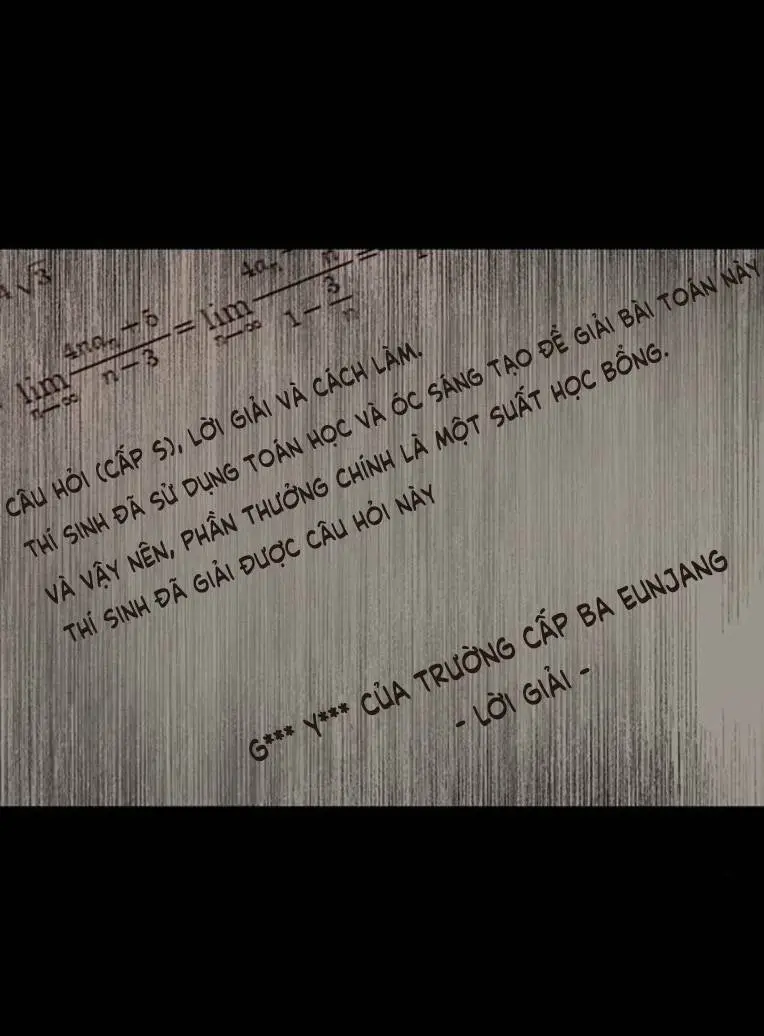 4√3
lim n→∞ (4na_n - 5)/(n - 3) = lim n→∞ (4a_n - /n)/(1 - 3/n) =
CÂU HỎI (CẤP S), LỜI GIẢI VÀ CÁCH LÀM.
THÍ SINH ĐÃ SỬ DỤNG TOÁN HỌC VÀ ÓC SÁNG TẠO ĐỂ GIẢI BÀI TOÁN NÀY
VÀ VẬY NÊN, PHẦN THƯỞNG CHÍNH LÀ MỘT SUẤT HỌC BỔNG.
THÍ SINH ĐÃ GIẢI ĐƯỢC CÂU HỎI NÀY
G*** Y*** CỦA TRƯỜNG CẤP BA EUNJANG
- LỜI GIẢI -